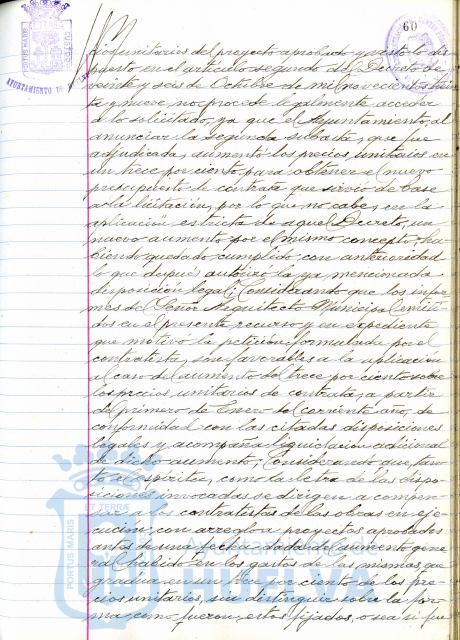 60
PORTUS MARIS
AYUNTAMIENTO DE
cios unitarios del proyecto aprobado y visto lo dis-
puesto en el artículo segundo del Decreto de
veinte y seis de Octubre de mil novecientos trein-
ta y nueve, no procede legalmente acceder
a lo solicitado, ya que el Ayuntamiento, al
anunciar la segunda subasta, que fue
adjudicada, aumentó los precios unitarios en
un trece por ciento, para obtener el nuevo
presupuesto de contrata que sirvió de base
a la licitación, por lo que no cabe, en la
aplicación estricta de aquel Decreto, un
nuevo aumento por el mismo concepto, ha-
biendo quedado cumplido con anterioridad
lo que después autorizó la ya mencionada
disposición legal; Considerando que los infor-
mes del Señor Arquitecto Municipal emiti-
dos en el presente recurso y en expediente
que motivó la petición formulada por el
contratista, son favorables a la aplicación
al caso del aumento del trece por ciento sobre
los precios unitarios de contrata, a partir
del primero de Enero del corriente año, de
conformidad con las citadas disposiciones
legales y acompaña liquidación adicional
de dicho aumento; Considerando que tan-
to el espíritu, como la letra de las dispo-
siciones invocadas se dirigen a compen-
sar a los contratistas de las obras en eje-
cución, con arreglo a proyectos aprobados
antes de una fecha dada del aumento gene-
ral habido en los gastos de las mismas, que
gradúa en un trece por ciento de los pre-
cios unitarios, sin distinguir sobre la for-
ma como fueron estos fijados, o sea si fue
ET TERRA
PORTUS MARIS
Ayuntamiento de